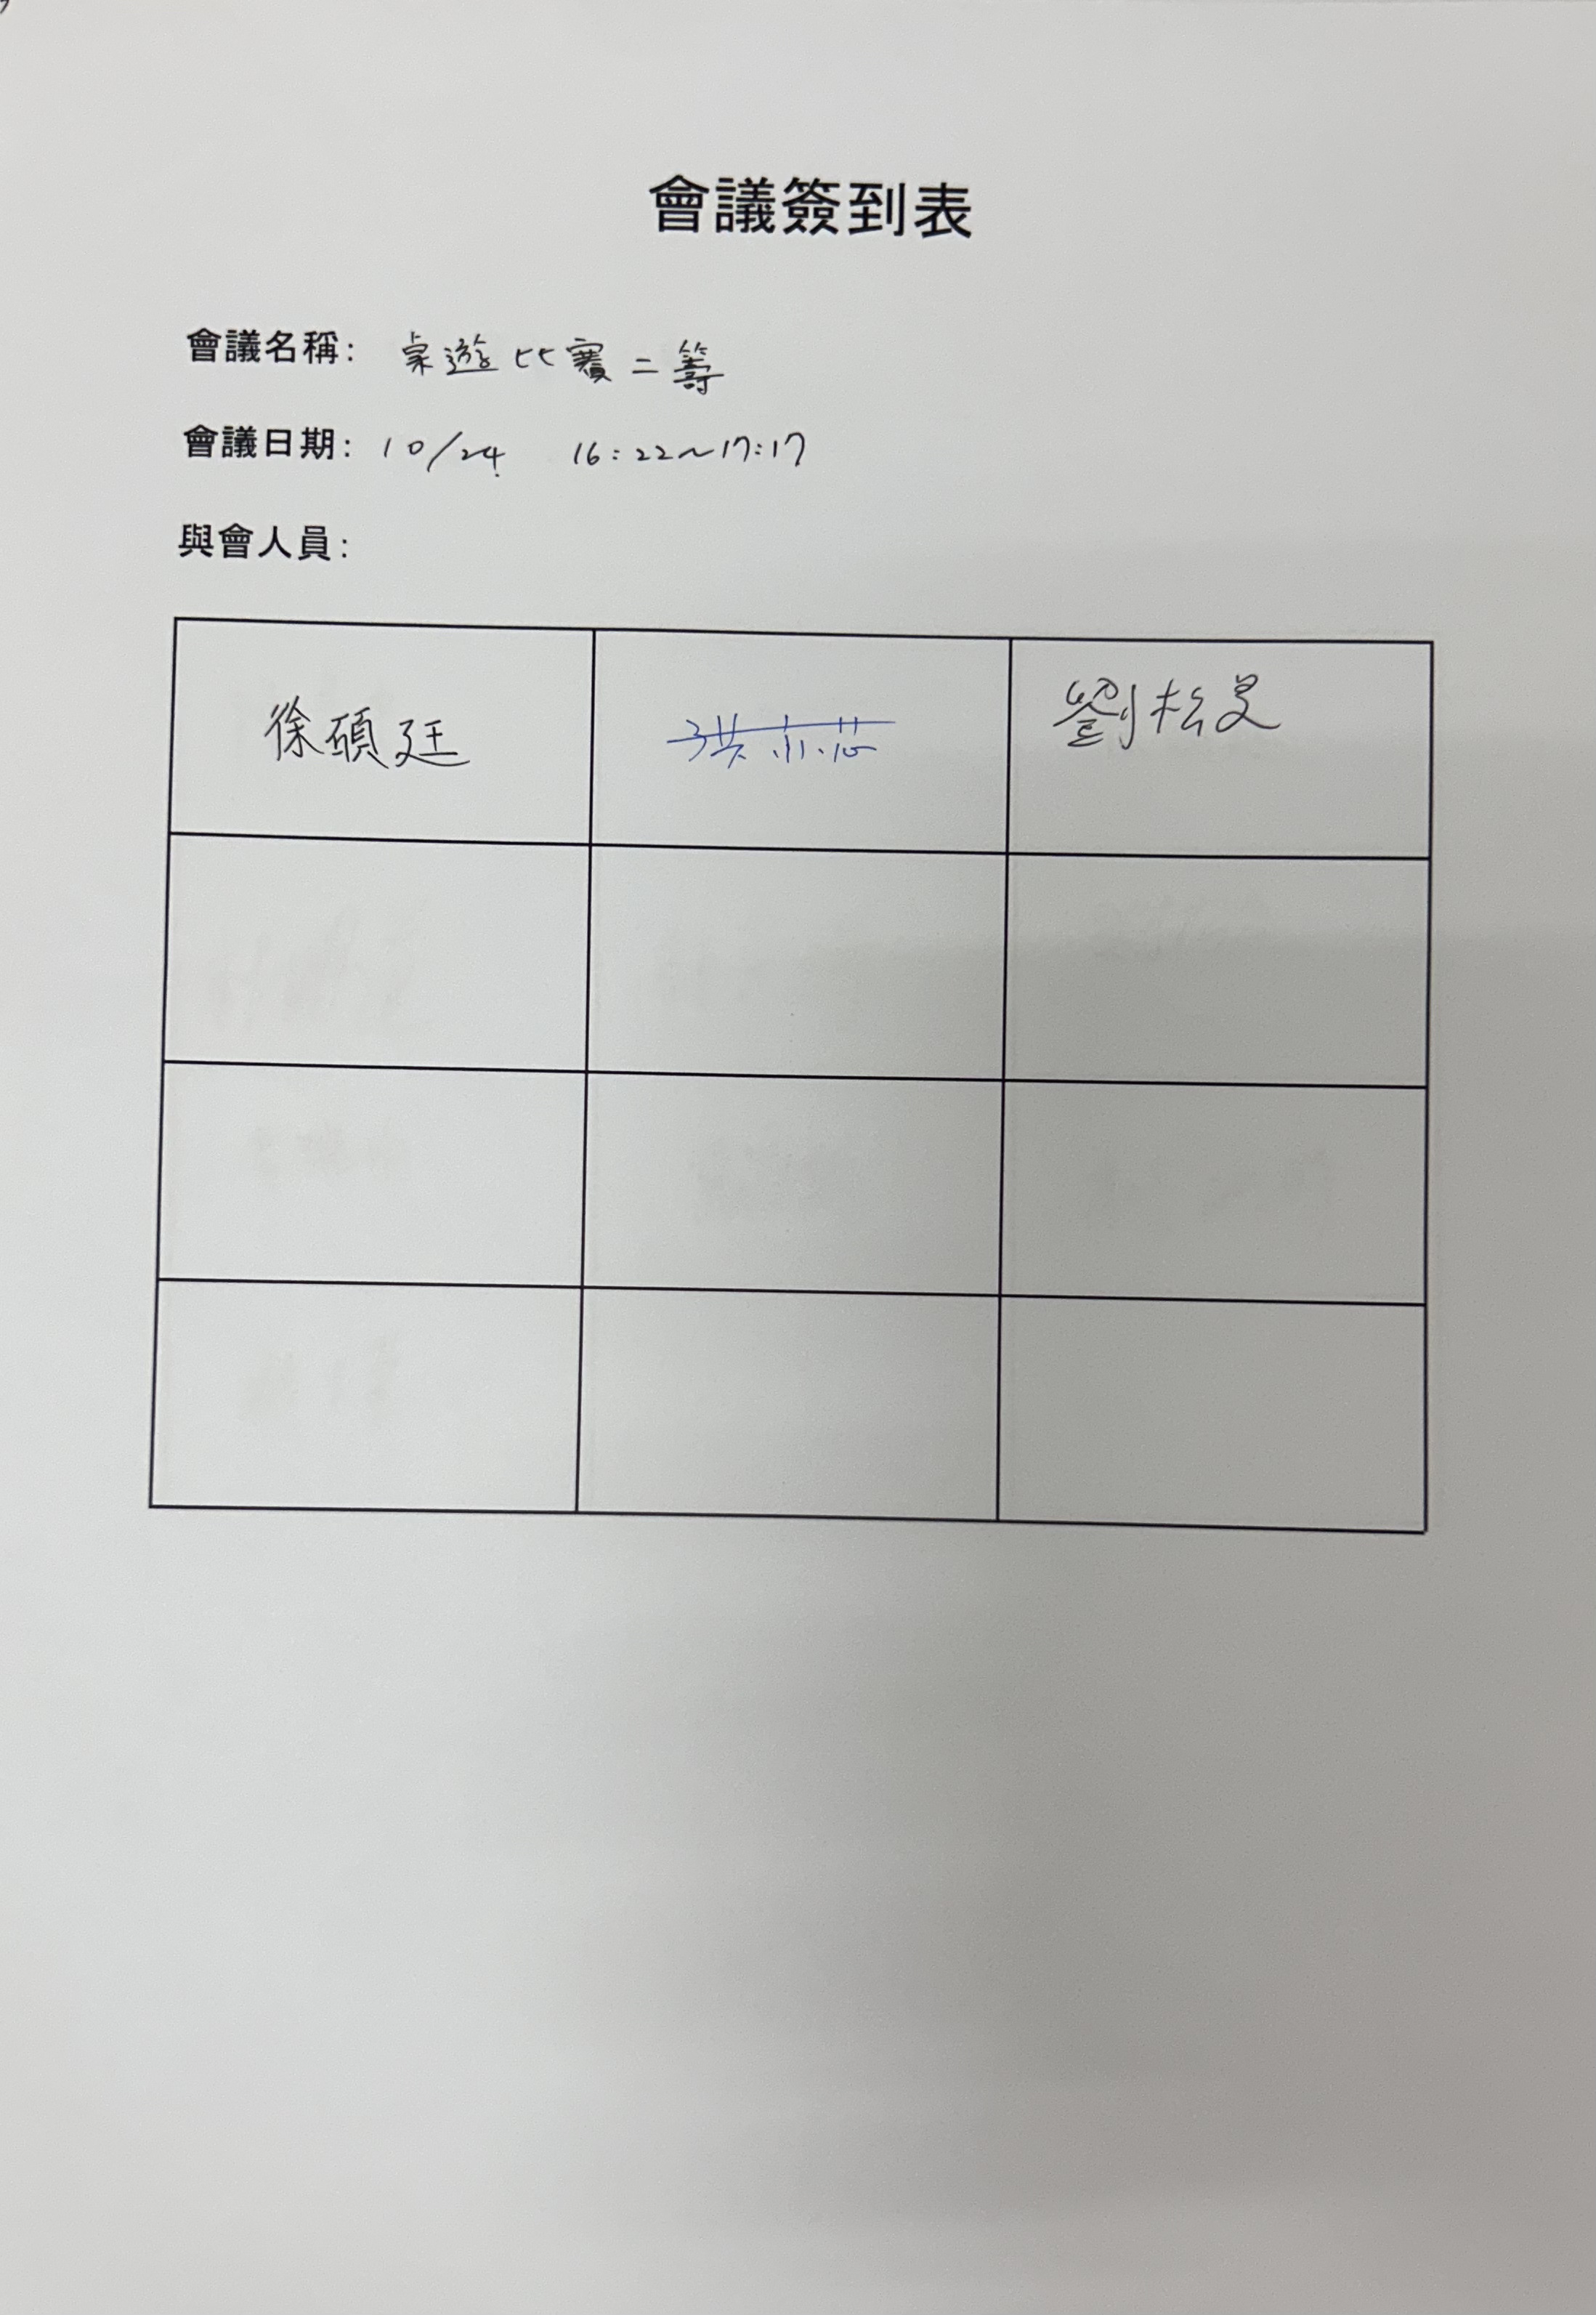 會議簽到表
會議名稱: 桌遊比賽二籌
會議日期: 10/24 16:22~17:17
與會人員:
徐碩廷
洪 芯
劉松旻